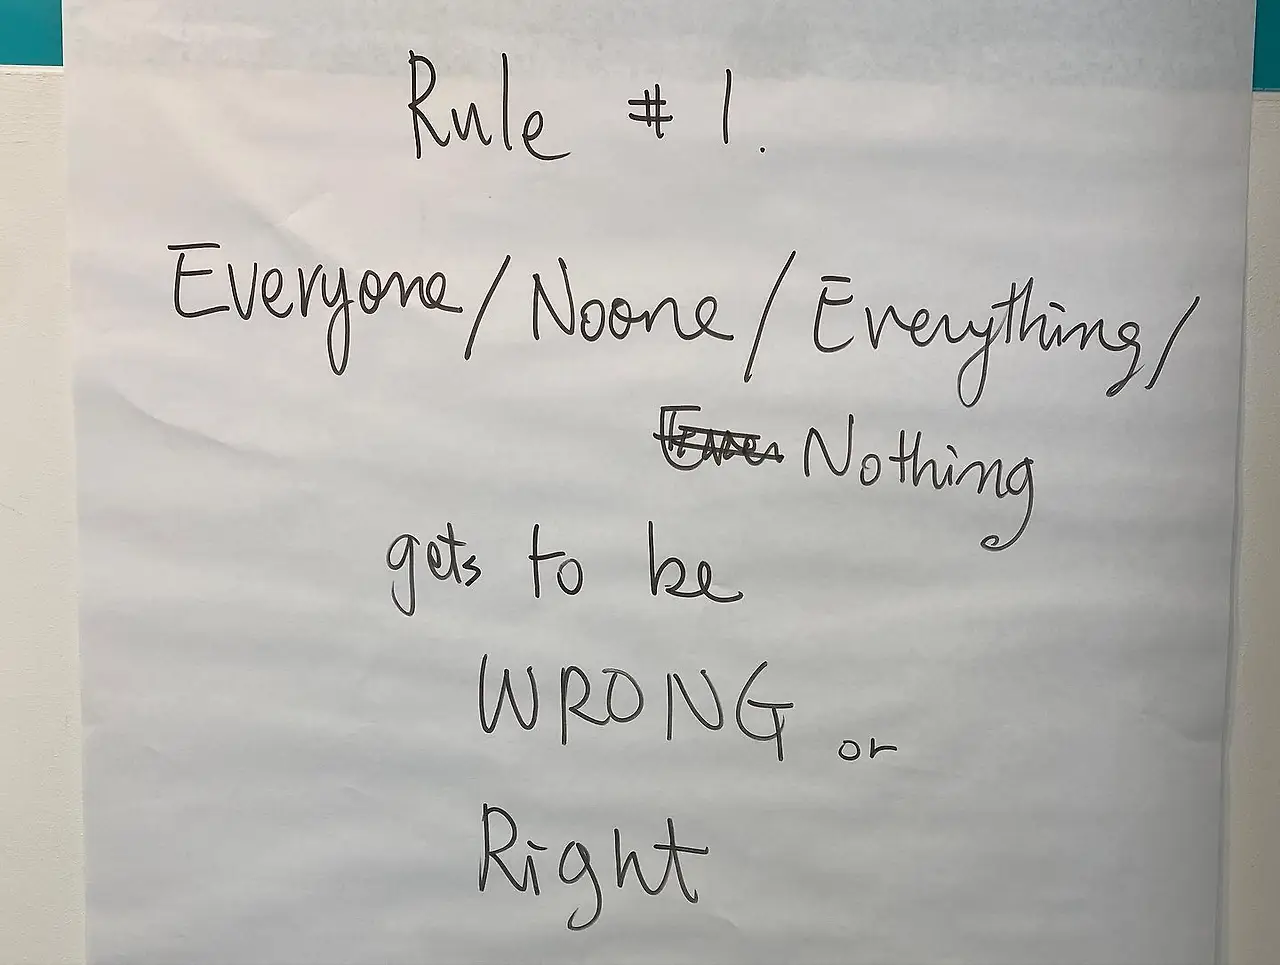 Rule # 1.
Everyone / Noone / Everything /
Nothing
gets to be
WRONG or
Right